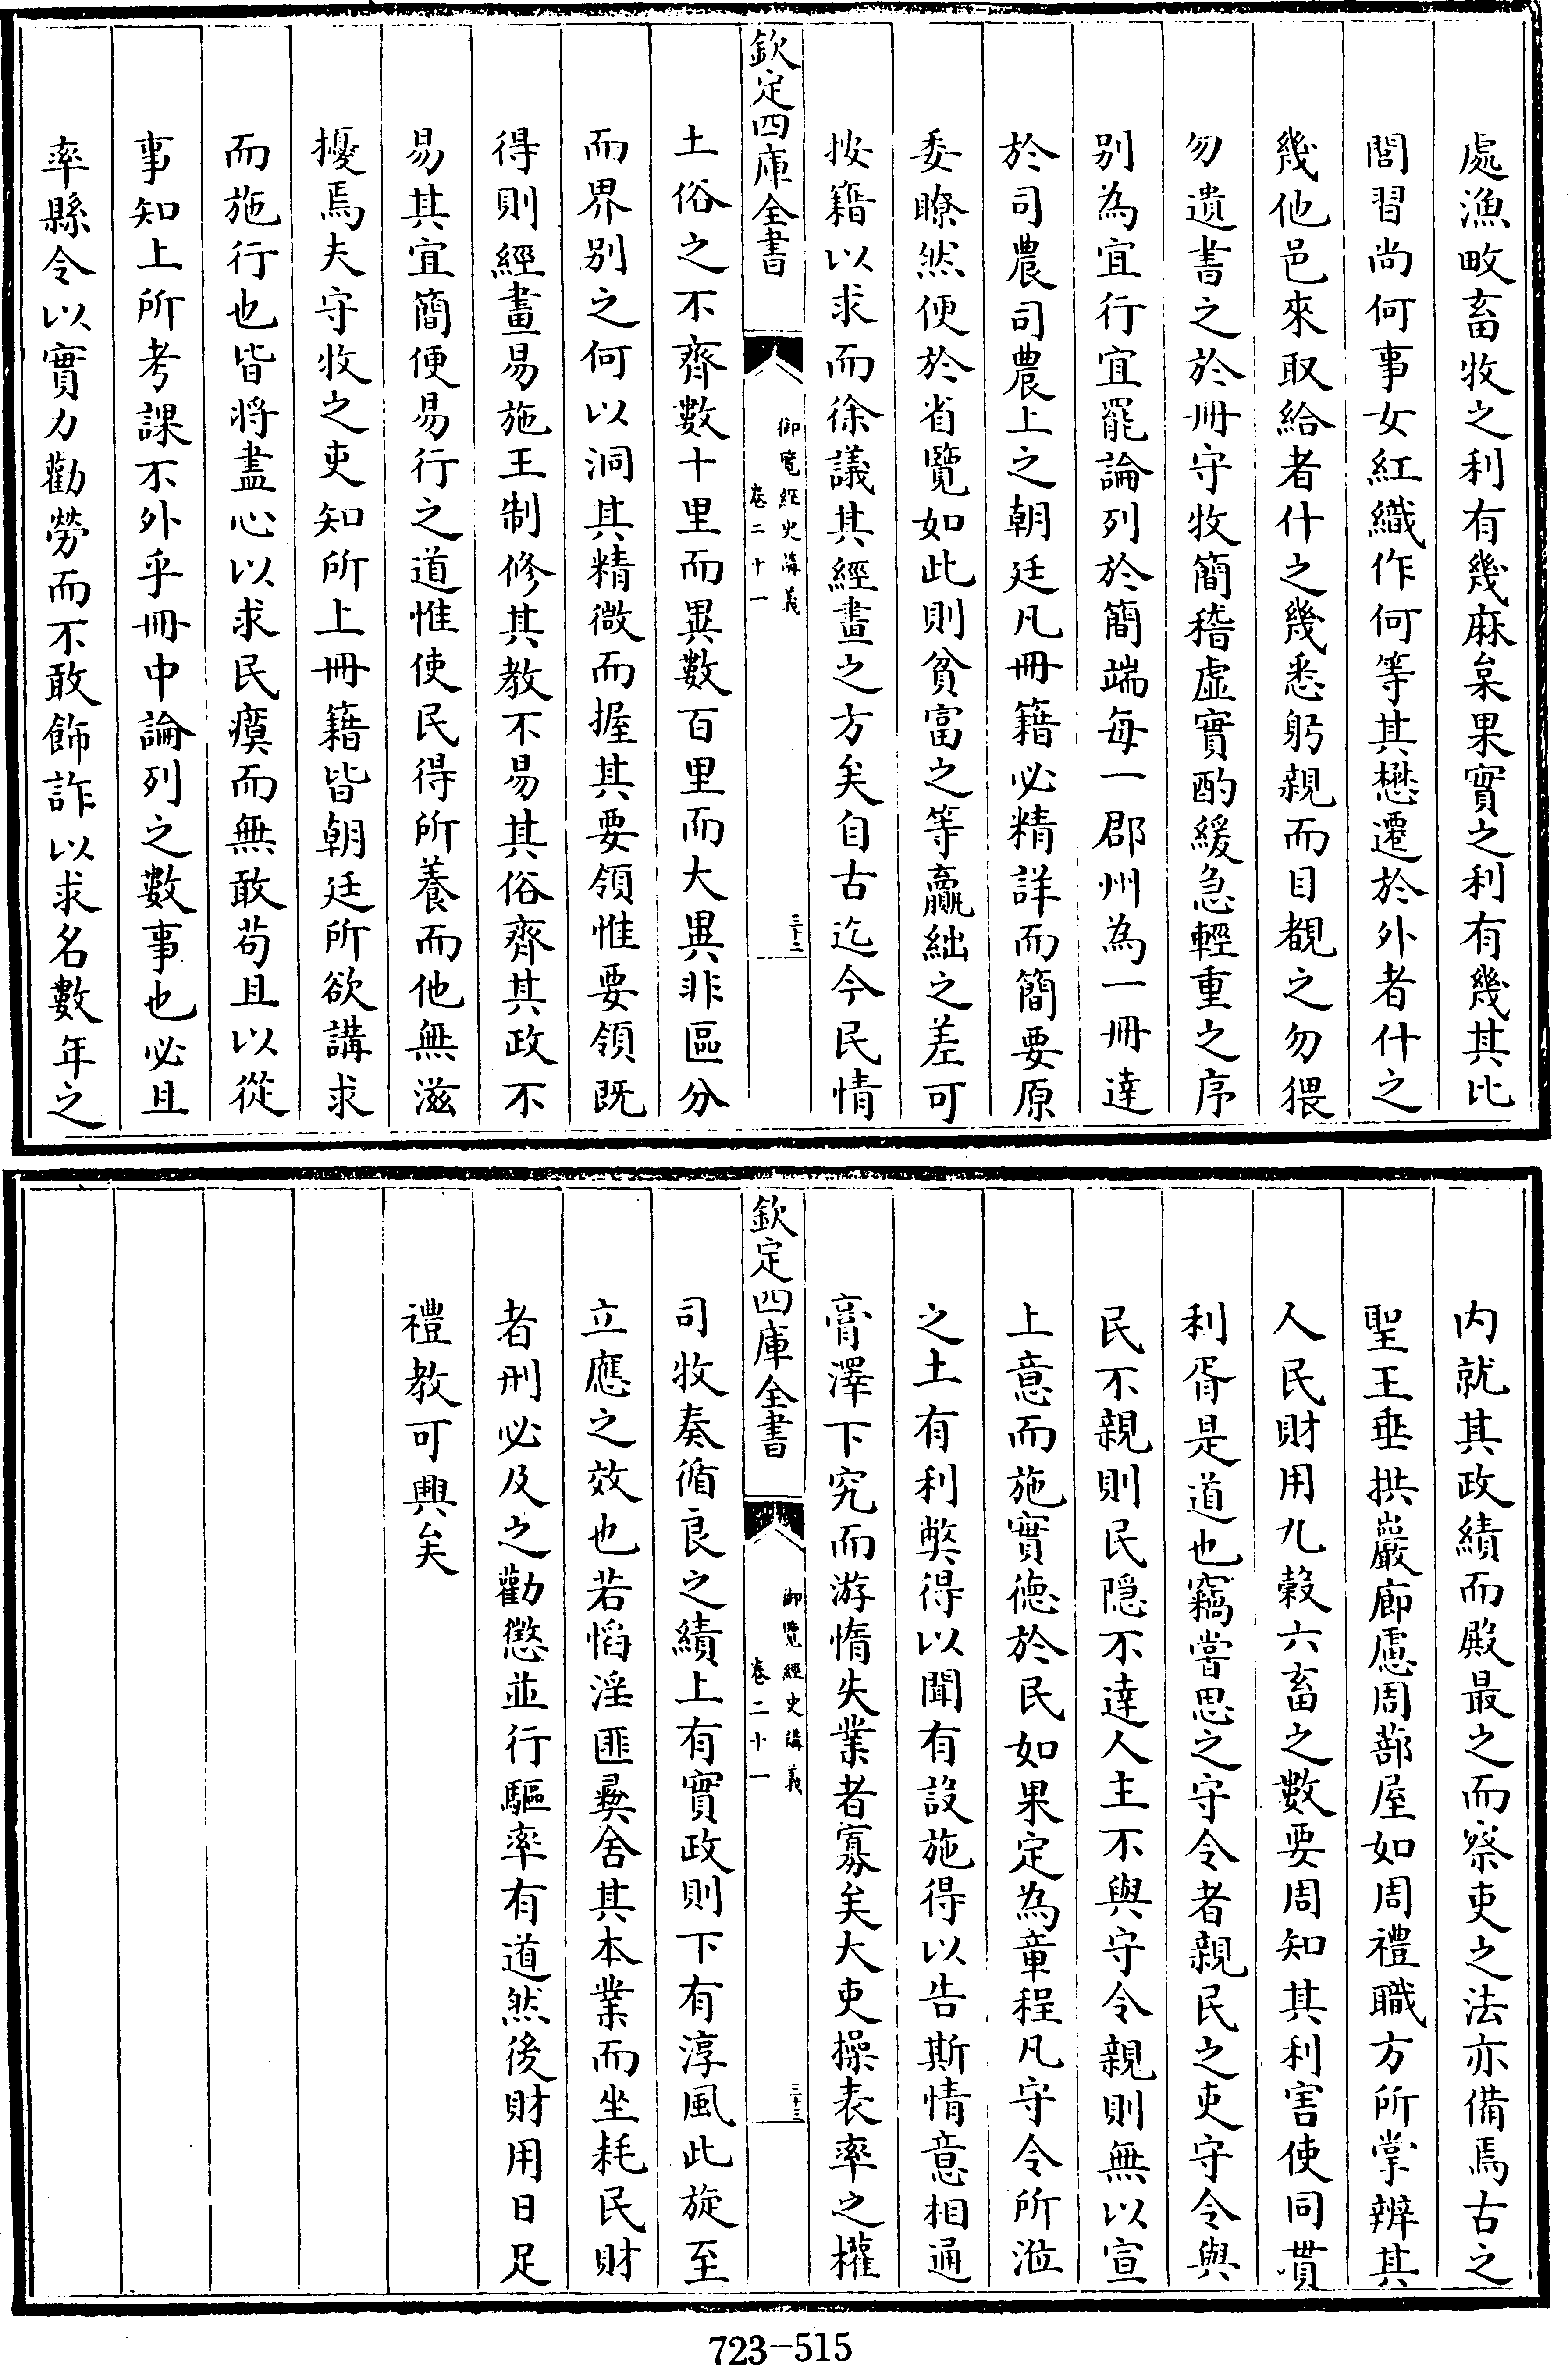 處漁畋畜牧之利有幾麻枲果實之利有幾其比
閭習尚何事女紅織作何等其懋遷於外者什之
幾他邑來取給者什之幾悉躬親而目覩之勿猥
勿遺書之於冊守牧簡稽虛實酌緩急輕重之序
别為宜行宜罷論列於簡端每一郡州為一冊達
於司農司農上之朝廷凡冊籍必精詳而簡要原
委瞭然便於省覽如此則貧富之等贏絀之差可
按籍以求而徐議其經畫之方矣自古迄今民情
欽定四庫全書
御覽經史講義
卷二十一
三十二
土俗之不齊數十里而異數百里而大異非區分
而界别之何以洞其精微而握其要領惟要領既
得則經畫易施王制修其教不易其俗齊其政不
易其宜簡便易行之道惟使民得所養而他無滋
擾焉夫守牧之吏知所上冊籍皆朝廷所欲講求
而施行也皆將盡心以求民瘼而無敢苟且以從
事知上所考課不外乎冊中論列之數事也必且
率縣令以實力勸勞而不敢飾詐以求名數年之
內就其政績而殿最之而察吏之法亦備焉古之
聖王垂拱巖廊慮周蔀屋如周禮職方所掌辨其
人民財用九穀六畜之數要周知其利害使同貫
利胥是道也竊嘗思之守令者親民之吏守令與
民不親則民隱不達人主不與守令親則無以宣
上意而施實德於民如果定為章程凡守令所涖
之土有利弊得以聞有設施得以告斯情意相通
膏澤下究而游惰失業者寡矣大吏操表率之權
欽定四庫全書
御覽經史講義
卷二十一
三十三
司牧奏循良之績上有實政則下有淳風此旋至
立應之效也若慆淫匪彝舍其本業而坐耗民財
者刑必及之勸懲並行驅率有道然後財用日足
禮教可興矣
723-515